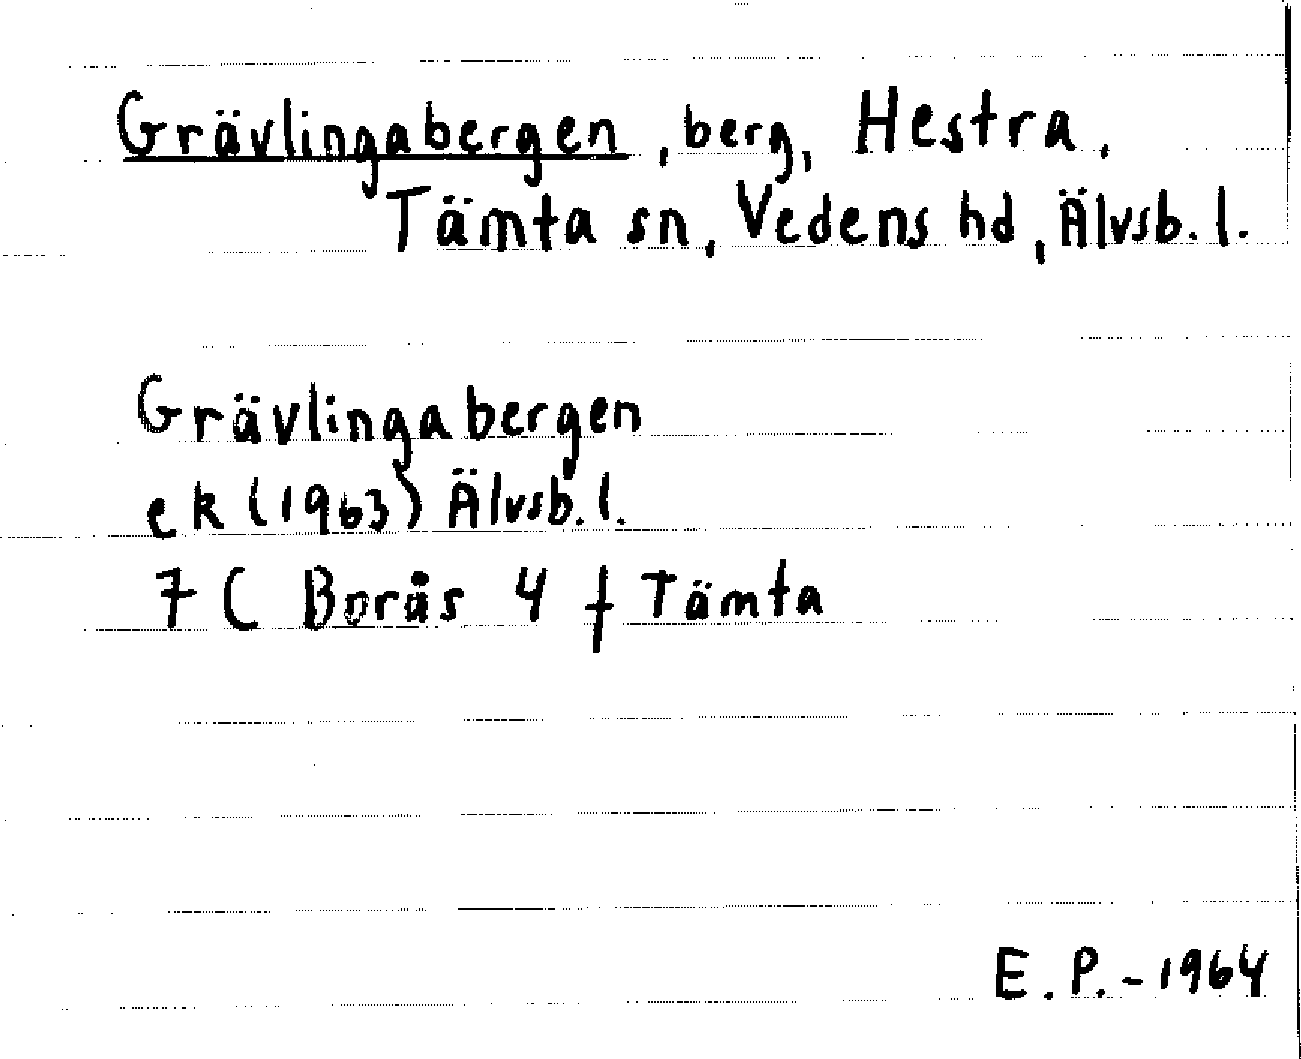 Grävlingabergen, berg, Hestra,
Tämta sn, Vedens hd, Älvsb. l.
Grävlingabergen
ek (1963) Älvsb. l.
7 C Borås 4 f Tämta
E. P. - 1964